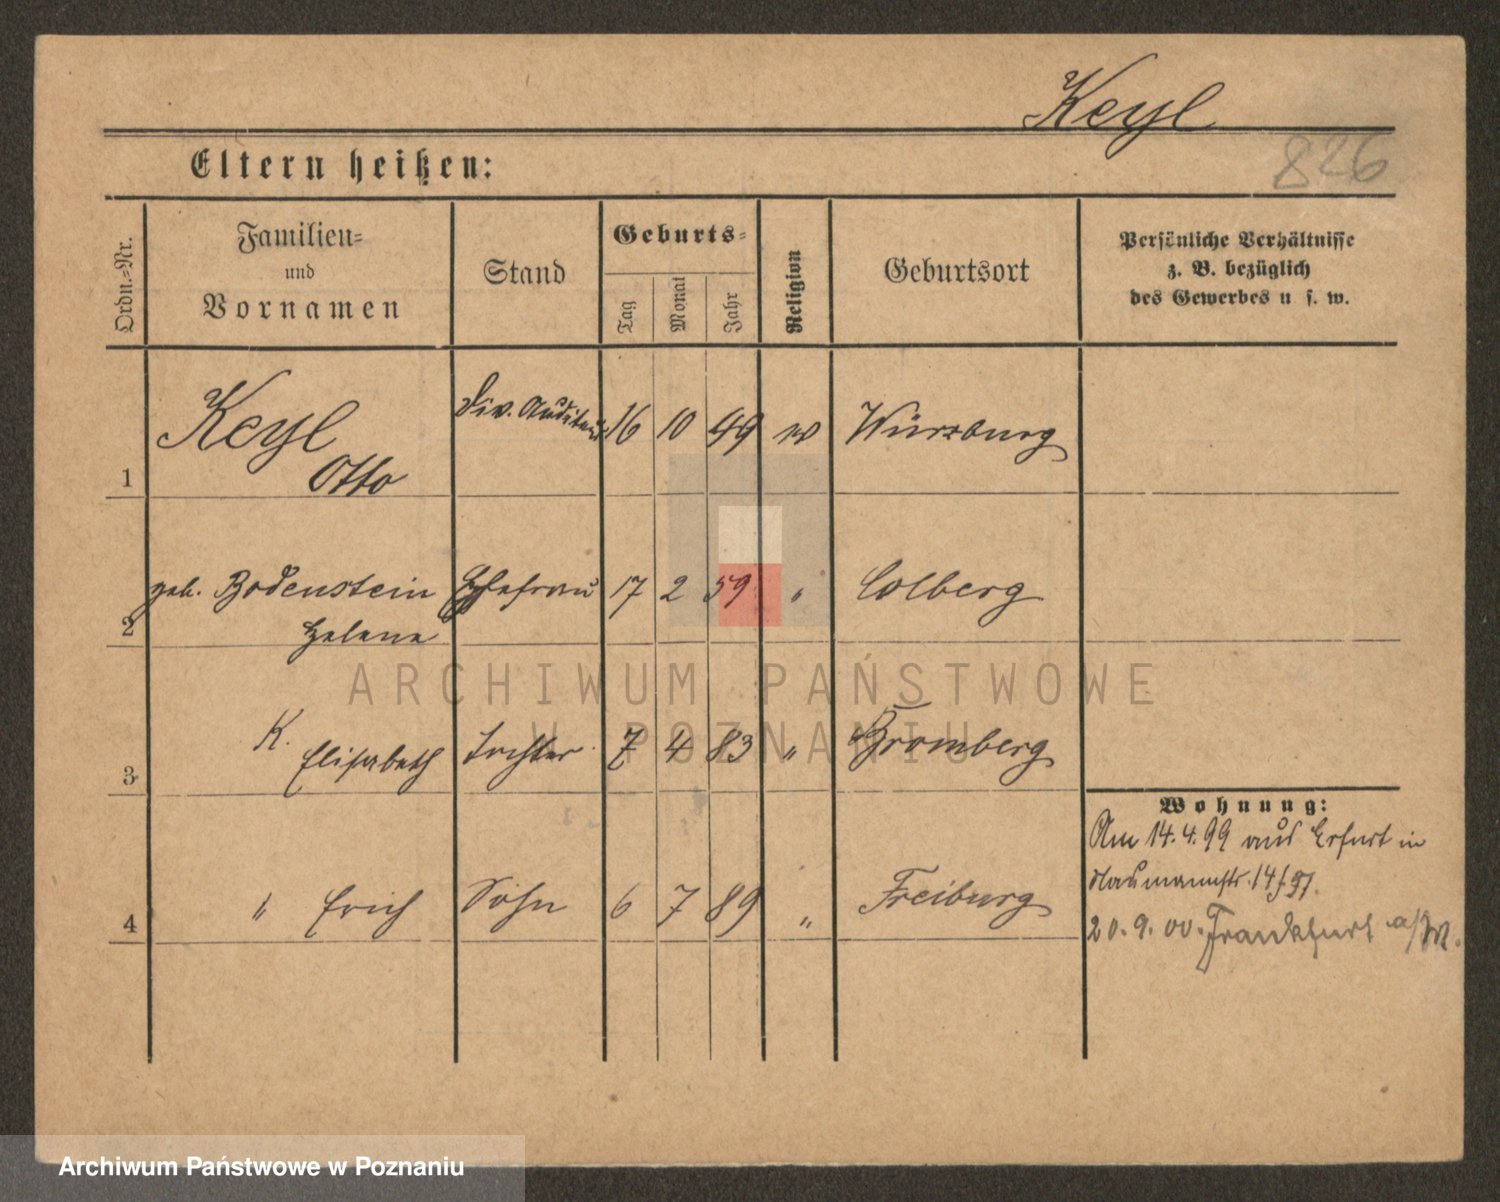 Keyl
826
Eltern heißen:
Ordn.-Nr.
Familien-
und
Vornamen
Stand
Geburts-
Tag
Monat
Jahr
Religion
Geburtsort
Persönliche Verhältnisse
z. B. bezüglich
des Gewerbes u s. w.
1 Keyl Div. Auditeur 16 10 49 Würzburg
Otto
2 geb. Bodenstein Ehefrau 17 2 59 " Colberg
Helene
3 K. Elisabeth Tochter 7 4 83 " Bromberg
4 " Erich Sohn 6 7 89 " Freiburg
Wohnung:
Am 14.4.99 aus Erfurt in
Naumannstr. 14
20.9.00. Frankfurt a/M.
ARCHIWUM PAŃSTWOWE
W POZNANIU
Archiwum Państwowe w Poznaniu